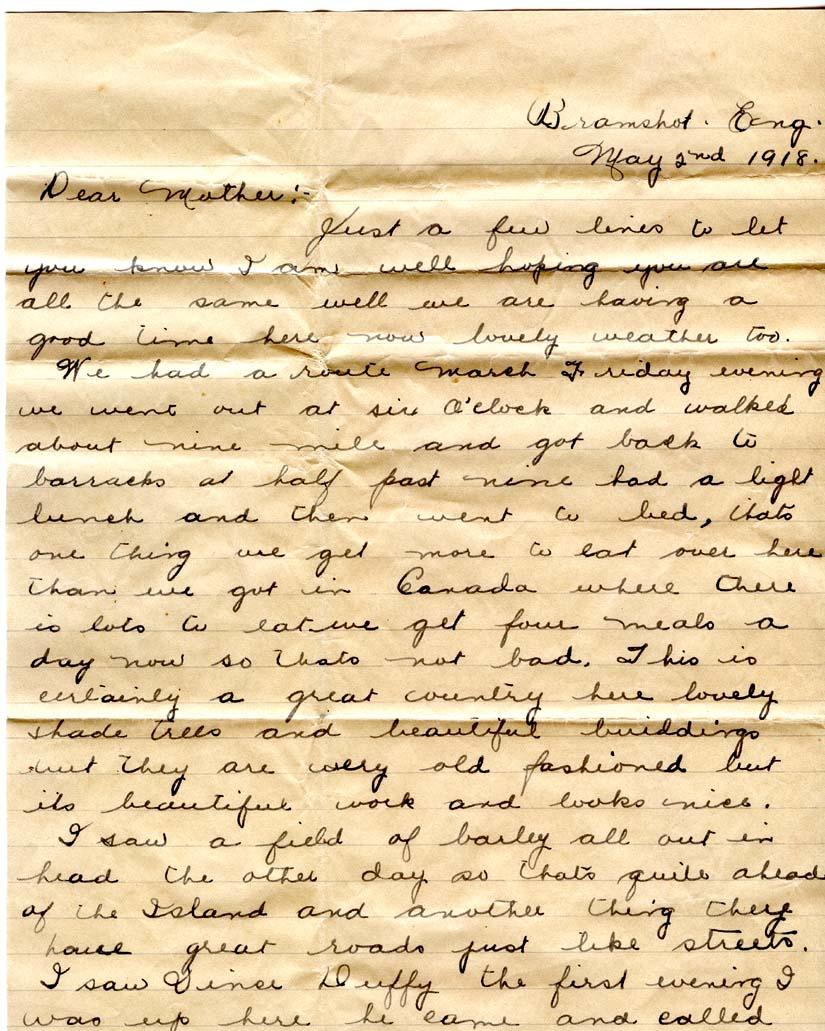 Bramshot. Eng.
May 2nd 1918.
Dear Mother!-
Just a few lines to let
you know I am well hoping you are
all the same well we are having a
good time here now lovely weather too.
We had a route march Friday evening
we went out at six O'clock and walked
about nine mile and got back to
barracks at half past nine had a light
lunch and then went to bed, thats
one thing we get more to eat over here
than we got in Canada where there
is lots to eat we get four meals a
day now so thats not bad. This is
certainly a great country here lovely
shade trees and beautiful buildings
but they are very old fashioned but
its beautiful work and looks nice.
I saw a field of barley all out in
head the other day so thats quite ahead
of the Island and another thing they
have great roads just like streets.
I saw Vince Duffy the first evening I
was up here he came and called